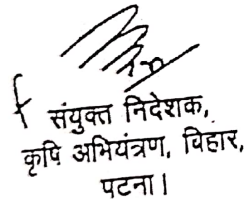 संयुक्त निदेशक,
कृषि अभियंत्रण, विहार,
पटना।